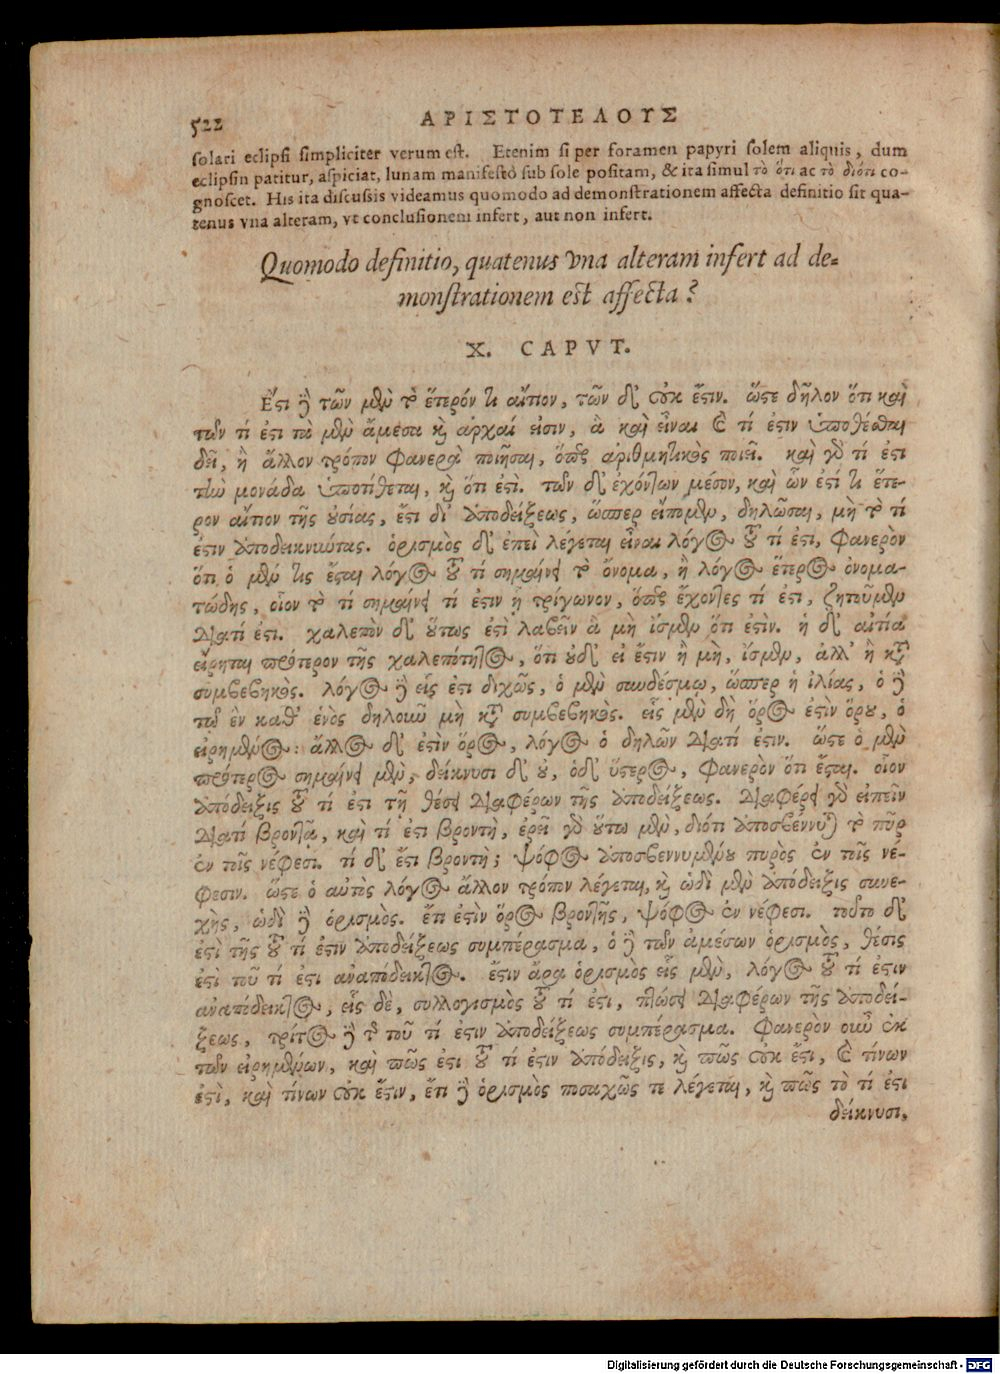 522 ΑΡΙΣΤΟΤΕΛΟΥΣ
solari eclipsi simpliciter verum est. Etenim si per foramen papyri solem aliquis, dum
eclipsin patitur, aspiciat, lunam manifestò sub sole positam, & ita simul τὸ ὅτι ac τὸ διότι co-
gnoscet. His ita discussis videamus quomodo ad demonstrationem affecta definitio sit qua-
tenus vna alteram, vt conclusionem infert, aut non infert.
Quomodo definitio, quatenus vna alteram infert ad de-
monstrationem est affecta?
X. CAPVT.
Ἔστι δὲ τῶν μὲν τὸ ἕτερόν τι αἴτιον, τῶν δ' οὐκ ἔστιν. ὥστε δῆλον ὅτι καὶ
τῶν τί ἐστι τὰ μὲν ἄμεσα καὶ ἀρχαί εἰσιν, ἃ καὶ εἶναι καὶ τί ἐστιν ὑποθέσθαι
δεῖ, ἢ ἄλλον τρόπον φανερὰ ποιῆσαι, ὅπερ ἀριθμητικὸς ποιεῖ. καὶ γὰρ τί ἐστι
τὴν μονάδα ὑποτίθεται, καὶ ὅτι ἐστί. τῶν δ' ἐχόντων μέσον, καὶ ὧν ἐστί τι ἕτε-
ρον αἴτιον τῆς οὐσίας, ἔστι δι' ἀποδείξεως, ὥσπερ εἴπομεν, δηλῶσαι, μὴ τὸ τί
ἐστιν ἀποδεικνύντας. ὁρισμὸς δ' ἐπεὶ λέγεται εἶναι λόγος τοῦ τί ἐστι, φανερὸν
ὅτι ὁ μέν τις ἔσται λόγος τοῦ τί σημαίνει τὸ ὄνομα, ἢ λόγος ἕτερος ὀνομα-
τώδης, οἷον τὸ τί σημαίνει τί ἐστιν ᾗ τρίγωνον, ὅπερ ἔχοντες τί ἐστι, ζητοῦμεν
διατί ἐστι. χαλεπὸν δ' οὕτως ἐστὶ λαβεῖν ἃ μὴ ἴσμεν ὅτι ἐστίν. ἡ δ' αἰτία
εἴρηται πρότερον τῆς χαλεπότητος, ὅτι οὐδ' εἰ ἔστιν ἢ μὴ, ἴσμεν, ἀλλ' ἢ κατὰ
συμβεβηκός. λόγος δὲ εἷς ἐστι διχῶς, ὁ μὲν συνδέσμῳ, ὥσπερ ἡ ἰλίας, ὁ δὲ
τῷ ἓν καθ' ἑνὸς δηλοῦν μὴ κατὰ συμβεβηκός. εἷς μὲν δὴ ὅρος ἐστὶν ὅρου, ὁ
εἰρημένος: ἄλλος δ' ἐστὶν ὅρος, λόγος ὁ δηλῶν διατί ἐστιν. ὥστε ὁ μὲν
πρότερος σημαίνει μὲν, δείκνυσι δ' οὔ, ὁδ' ὕστερος, φανερὸν ὅτι ἔσται. οἷον
ἀπόδειξις τοῦ τί ἐστι τῇ θέσει διαφέρων τῆς ἀποδείξεως. διαφέρει γὰρ εἰπεῖν
διατί βροντᾷ, καὶ τί ἐστι βροντή, ἐρεῖ γὰρ οὕτω μὲν, διότι ἀποσβέννυται τὸ πῦρ
ἐν τοῖς νέφεσι. τί δ' ἔστι βροντή; ψόφος ἀποσβεννυμένου πυρὸς ἐν τοῖς νέ-
φεσιν. ὥστε ὁ αὐτὸς λόγος ἄλλον τρόπον λέγεται, καὶ ὡδὶ μὲν ἀπόδειξις συνε-
χὴς, ὡδὶ δὲ ὁρισμός. ἔτι ἐστὶν ὅρος βροντῆς, ψόφος ἐν νέφεσι. τοῦτο δ'
ἐστὶ τῆς τοῦ τί ἐστιν ἀποδείξεως συμπέρασμα, ὁ δὲ τῶν ἀμέσων ὁρισμὸς, θέσις
ἐστὶ τοῦ τί ἐστι ἀναπόδεικτος. ἔστιν ἄρα ὁρισμὸς εἷς μὲν, λόγος τοῦ τί ἐστιν
ἀναπόδεικτος, εἷς δὲ, συλλογισμὸς τοῦ τί ἐστι, πτώσει διαφέρων τῆς ἀποδεί-
ξεως, τρίτος δὲ τὸ τοῦ τί ἐστιν ἀποδείξεως συμπέρασμα. φανερὸν οὖν ἐκ
τῶν εἰρημένων, καὶ πῶς ἐστι τοῦ τί ἐστιν ἀπόδειξις, καὶ πῶς οὐκ ἔστι, καὶ τίνων
ἐστὶ, καὶ τίνων οὐκ ἔστιν, ἔτι δὲ ὁρισμὸς ποσαχῶς τε λέγεται, καὶ πῶς τὸ τί ἐστι
δείκνυσι,
Digitalisierung gefördert durch die Deutsche Forschungsgemeinschaft - DFG